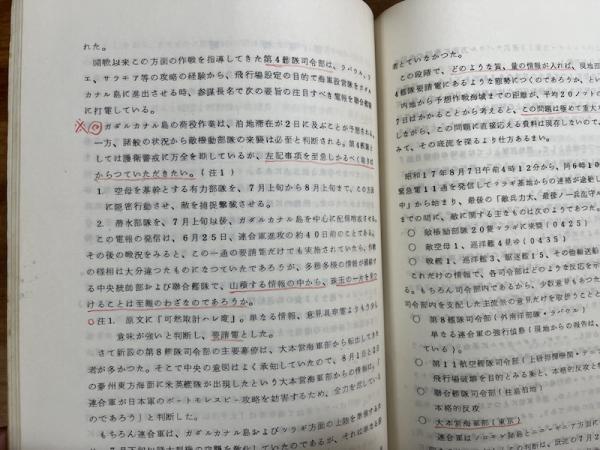 れた。
開戦以来この方面の作戦を指導してきた第4艦隊司令部は、ラバウル、
エ、サラモア等の攻略の経験から、飛行場設定の目的で海軍設営隊をガダル
カナル島に進出させる時、参謀長名で次の要旨の注目すべき電報を聯合艦隊
に打電している。
ガダルカナル島の荷役作業は、泊地滞在が2日に及ぶことが予想される。
一方、諸般の状況から敵機動部隊の来襲は必至と判断される。第4艦隊と
しては護衛警戒に万全を期しているが、左記事項を至急しかるべく取り計
らつていただきたい。(注1)
1. 空母を基幹とする有力部隊を、7月上旬から8月上旬まで、この方面
に隠密行動させ、敵を捕捉撃滅させる。
2. 潜水部隊を、7月上旬以後、ガダルカナル島を中心に配備増派する。
この電報の発信は、6月25日、連合軍進攻の約40日前のことである。
その後の戦況をみると、この一通の要請電だけでも実施されていたら、作戦
の様相は大分違つたものになつていたであろうが、多種多様の情報が
る中央統帥部および聯合艦隊で、山積する情報の中から、珠玉の一片を見つ
けることは至難のわざなのであろうか。
注1. 原文に「可然取計ハレ度」。単なる情報、意見具申電よりもうすこし
意味が強いと判断し、要請電とした。
さて新設の第8艦隊司令部の主要幕僚は、大本営海軍部から転出してきた
者が多かつた。そこで中央の意図はよく承知していたので、8月1日と4日
の豪州東方海面に米英艦隊が出現したという大本営海軍部からの情報は、「
連合軍が日本軍のポートモレスビー攻略を妨害するため、全力を尽している
のであろう」と判断した。
もちろん連合軍は、ガダルカナル島およびツラギ方面の上陸を準備するた
者といなかつた。
この段階で、どのような質、量の情報が入れば、現地
艦隊要請電にあるような態勢につくのであろうか、とい
内地から予想作戦海域までの距離が、平均20ノット
7日はかかることから考えると、この問題は極めて重大
しながら、この問題に直接応える資料は現存しないので、
みて、その底流を探るより仕方あるまい。
昭和17年8月7日午前4時12分から、同6時10
緊急電11通を発信してツラギ基地からの連絡が途絶し
中」から始まり、最後の「敵兵力大、最後ノ一兵迄守ル
までの間に、敵に関する主なものは次のようであつた。
○ 敵機動部隊20隻ツラギに来襲(0425)
○ 敵空母1、巡洋艦4見ゆ(0435)
○ 戦艦1、巡洋艦3、駆逐艦15、その他輸送船
これだけの情報で、各司令部はどのような反応を示
る。もちろん司令部内であるから、少数意見もあつた
司令部内を支配した主流派の意見だけを取扱うことと
○ 第8艦隊司令部(外南洋部隊・ラバウル)
単なる連合軍の強行偵察(現地からの報告は、
ている)。
○ 第11航空艦隊司令部(上級指揮機関・テニアン
飛行場破壊を目的とみると、本格的反攻と
○ 聯合艦隊司令部(柱島泊地)
本格的反攻
○ 大本営海軍部(東京)
連合軍はソロモン諸島とニューギニア方面に